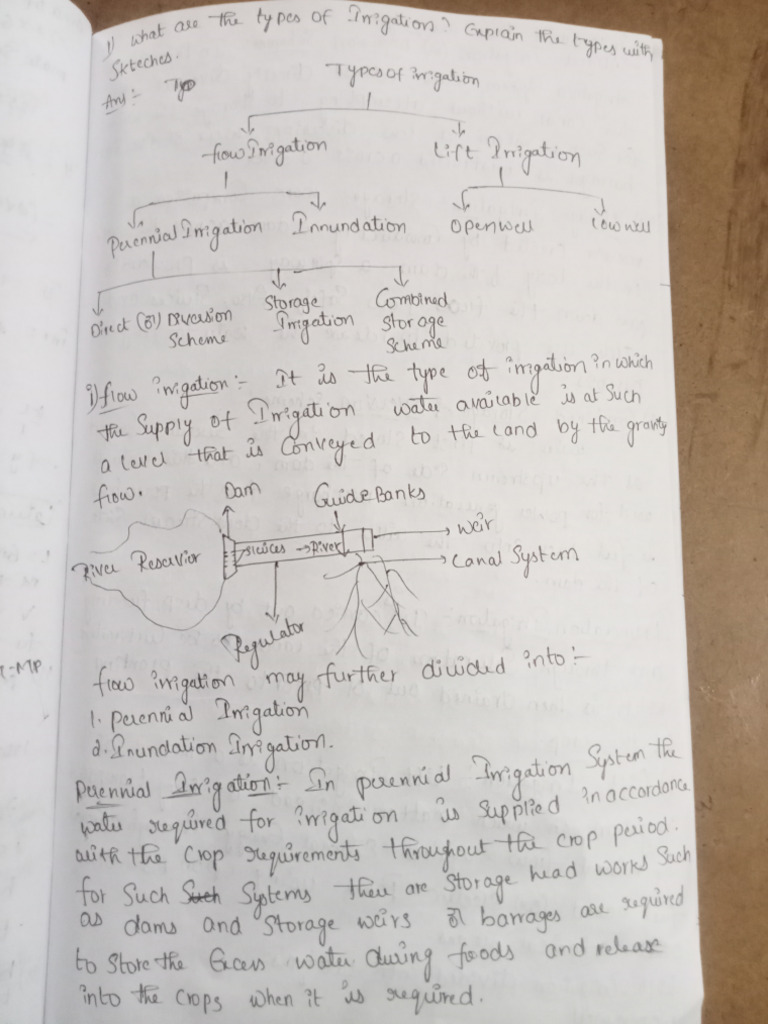 1) What are the types of Irrigation? Explain the types with
Skteches.
Ans:- Typ
Types of irrigation
flow Irrigation Lift Irrigation
Perennial Irrigation Innundation Openwell
Direct (or) Diversion Scheme Storage Irrigation Combined Storage Scheme
i) flow irrigation:- It is the type of irrigation in which
the supply of Irrigation water available is at Such
a level that is Conveyed to the land by the gravity
flow.
Dam Guide Banks
River Reservior Sluices → River Weir
Canal System
Regulator
flow irrigation may further divided into:-
1. perennial Irrigation
2. Inundation Irrigation.
Perennial Irrigation:- In perennial Irrigation System the
water required for irrigation is Supplied in accordance
with the Crop requirements throughout the crop period.
for Such Such Systems there are Storage head works Such
as dams and Storage weirs or barrages are required
to Store the Excess water during foods and release
into the Crops when it is required.